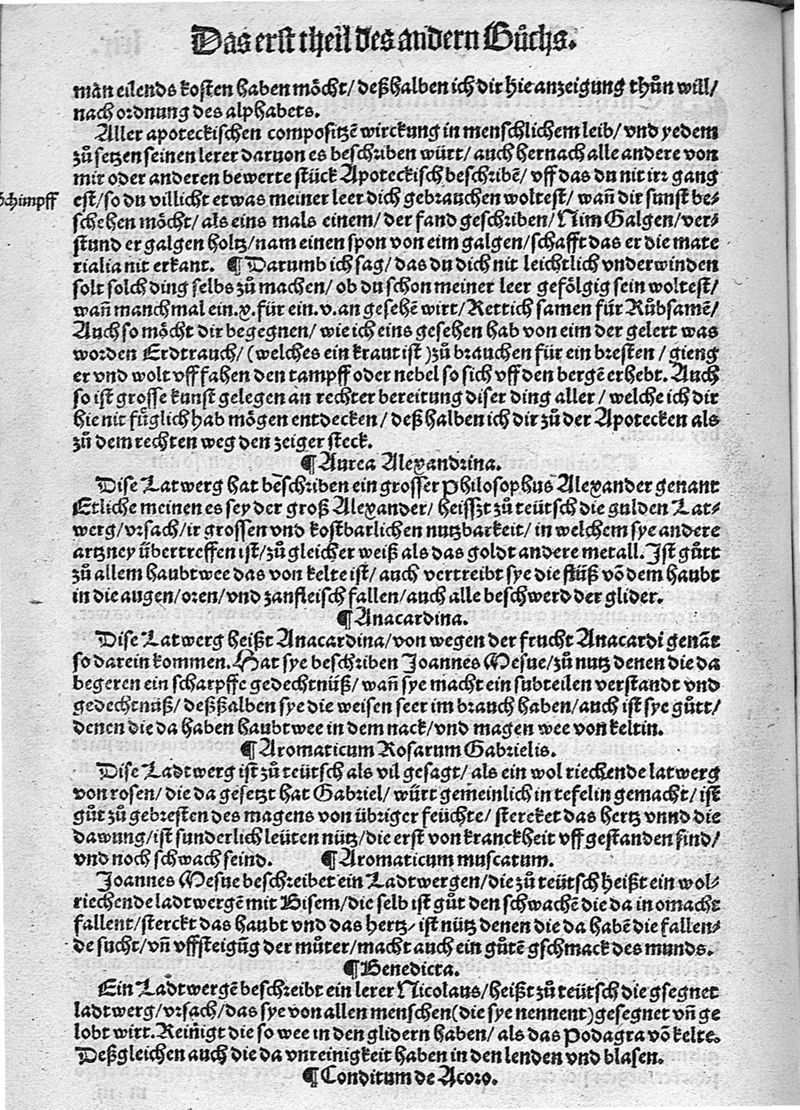 Das erst theil des andern Bůchs.
man eilends kosten haben möcht/ deßhalben ich dir hie anzeigung thůn will/
nach ordnung des alphabets.
Aller apoteckischen compositzē wirckung in menschlichem leib/ vnd yedem
zů setzen seinen lerer daruon es beschriben würt/ auch hernach alle andere von
mir oder anderen bewerte stück Apoteckisch beschribē/ vff das du nit irr gang
Schimpff
est/ so du villicht etwas meiner leer dich gebrauchen woltest/ wañ dir sunst be⸗
schehen möcht/ als eins mals einem/ der fand geschriben/ Nim Galgen/ ver⸗
stund er galgen holtz/ nam einen spon von eim galgen/ schafft das er die mate
rialia nit erkant. ¶ Darumb ich sag/ das du dich nit leichtlich vnderwinden
solt solch ding selbs zů machen/ ob du schon meiner leer gefölgig sein woltest/
wañ manchmal ein .x. für ein .v. an gesehē wirt/ Rettich samen für Růbsamē/
Auch so möcht dir begegnen/ wie ich eins gesehen hab von eim der gelert was
worden Erdtrauch/ (welches ein kraut ist) zů brauchen für ein bresten/ gieng
er vnd wolt vff fahen den tampff oder nebel so sich vff den bergē erhebt. Auch
so ist grosse kunst gelegen an rechter bereitung diser ding aller/ welche ich dir
hie nit füglich hab mögen entdecken/ deß halben ich dir zů der Apotecken als
zů dem rechten weg den zeiger steck.
¶ Aurea Alexandrina.
Dise Latwerg hat beschriben ein grosser Philosophus Alexander genant
Etliche meinen es sey der groß Alexander/ heisszt zů teütsch die gulden Lat⸗
werg/ vrsach/ ir grossen vnd kostbarlichen nutzbarkeit/ in welchem sye andere
artzney übertreffen ist/ zů gleicher weiß als das goldt andere metall. Ist gůtt
zů allem haubtwee das von kelte ist/ auch vertreibt sye die flüß vō dem haubt
in die augen/ oren/ vnd zanfleisch fallen/ auch alle beschwerd der glider.
¶ Anacardina.
Dise Latwerg heißt Anacardina/ von wegen der frucht Anacardi genāt
so darein kommen. Hat sye beschriben Joannes Mesue/ zů nutz denen die da
begeren ein scharpffe gedechtnüß/ wañ sye macht ein subteilen verstandt vnd
gedechtnüß/ deßßalben sye die weisen seer im brauch haben/ auch ist sye gůtt/
denen die da haben haubtwee in dem nack/ vnd magen wee von keltin.
¶ Aromaticum Rosarum Gabrielis.
Dise Ladtwerg ist zů teütsch als vil gesagt/ als ein wol riechende latwerg
von rosen/ die da gesetzt hat Gabriel/ würt gemeinlich in tefelin gemacht/ ist
gůt zů gebresten des magens von übriger feüchte/ stercket das hertz vnnd die
dawung/ ist sunderlich leüten nütz/ die erst von kranckheit vff gestanden sind/
vnd noch schwach seind. ¶ Aromaticum muscatum.
Joannes Mesue beschreibet ein Ladtwergen/ die zů teütsch heißt ein wol⸗
riechende ladtwergē mit Bisem/ die selb ist gůt den schwachē die da in omacht
fallent/ sterckt das haubt vnd das hertz/ ist nütz denen die da habē die fallen⸗
de sucht/ vñ vffsteigūg der můter/ macht auch ein gůtē gschmack des munds.
¶ Benedicta.
Ein Ladtwergē beschreibt ein lerer Nicolaus/ heißt zů teütsch die gsegnet
ladtwerg/ vrsach/ das sye von allen menschen (die sye nennent) gesegnet vñ ge
lobt wirt. Reinigt die so wee in den glidern haben/ als das Podagra vō kelte.
Deßgleichen auch die da vnreinigkeit haben in den lenden vnd blasen.
¶ Conditum de Acoro.